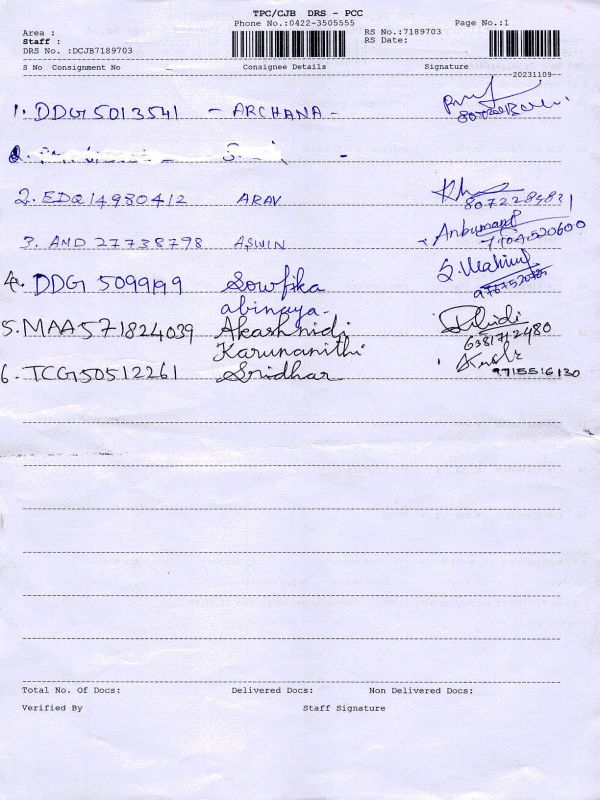 TPC/CJB DRS - PCC
Phone No.:0422-3505555 Page No.:1
Area : RS No.:7189703
Staff : RS Date:
DRS No. :DCJB7189703
S No Consignment No Consignee Details Signature
--20231109--
1. DDG 5013541 - ARCHANA -
2. EDQ14980412 ARAV
8072284831
3. AMD 27738798 ASWIN Anbumani
7104520600
4. DDG 5099199 Sowfika
abinaya- 9787520785
5. MAA571824039 Akashnidi
Karunanithi 6381712480
6. TCG50512261 Sridhar 9715516130
Total No. Of Docs: Delivered Docs: Non Delivered Docs:
Verified By Staff Signature